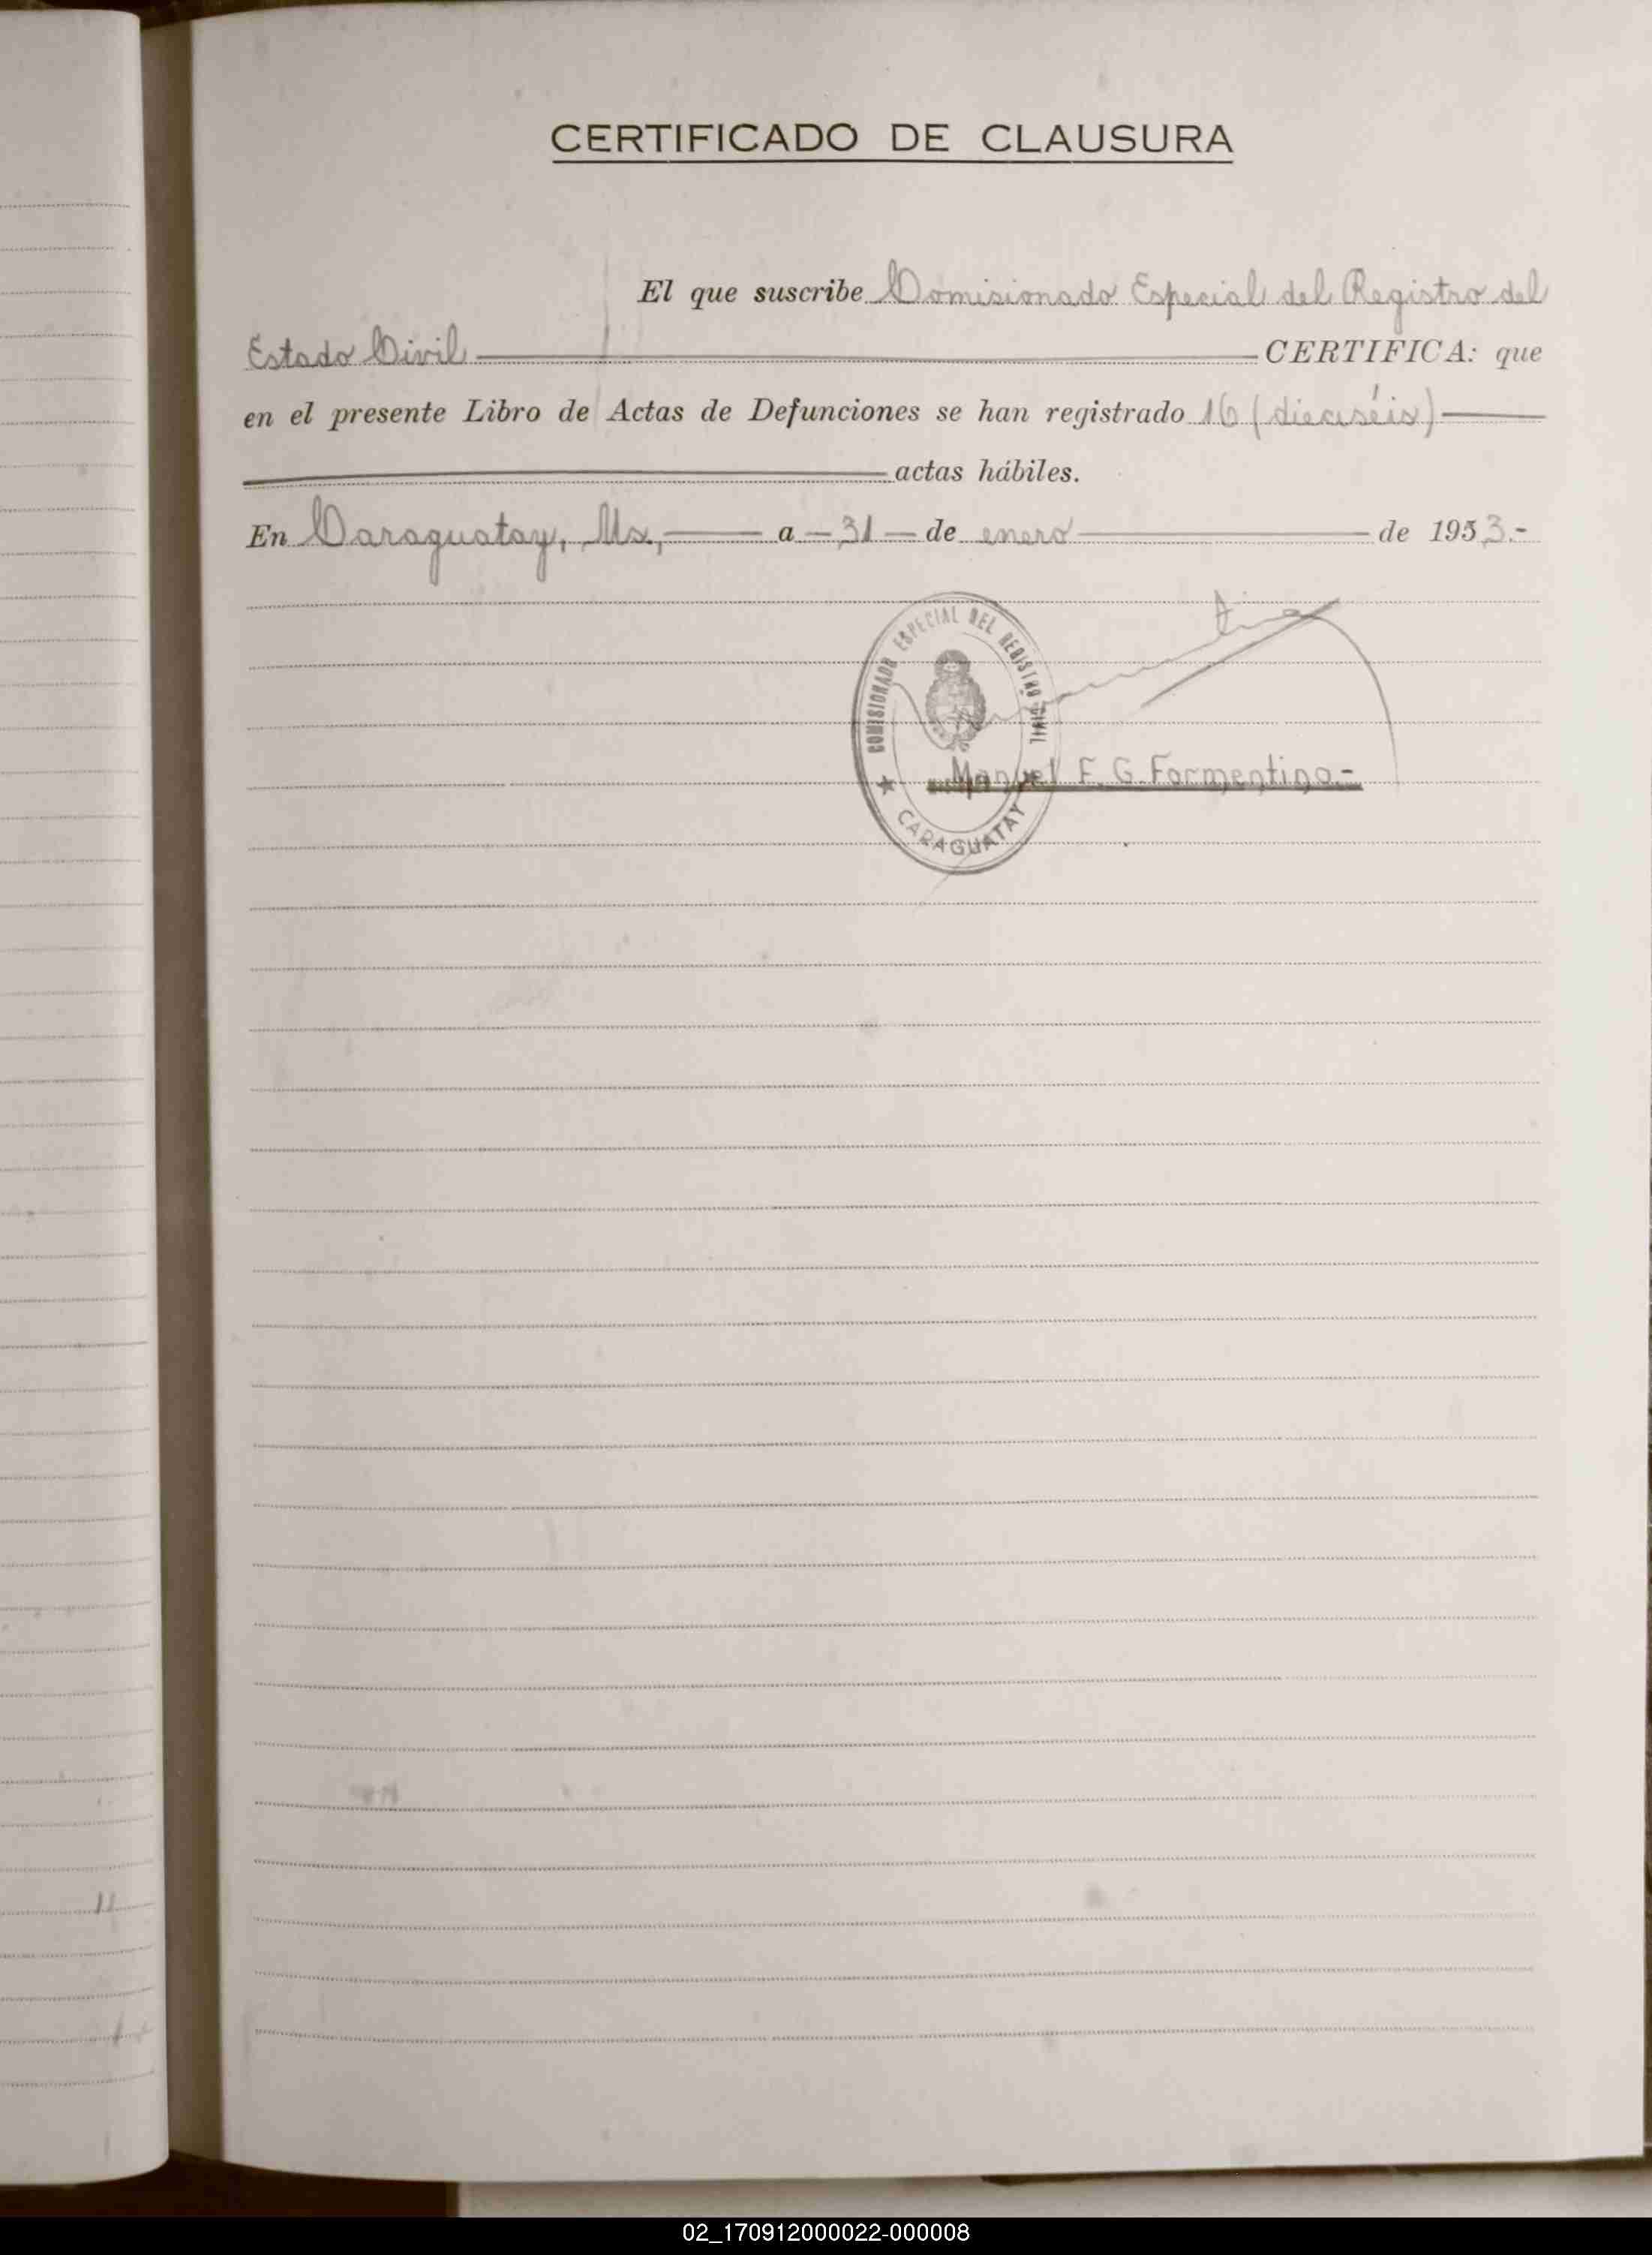 CERTIFICADO DE CLAUSURA
El que suscribe Comisionado Especial del Registro del
Estado Civil CERTIFICA: que
en el presente Libro de Actas de Defunciones se han registrado 16 (dieciséis)
actas hábiles.
En Caraguatay, Ms., a - 31 - de enero de 1953.-
COMISIONADO ESPECIAL DEL REGISTRO CIVIL
Manuel F. G. Formentino.-
★ CARAGUATAY ★
02_170912000022-000008